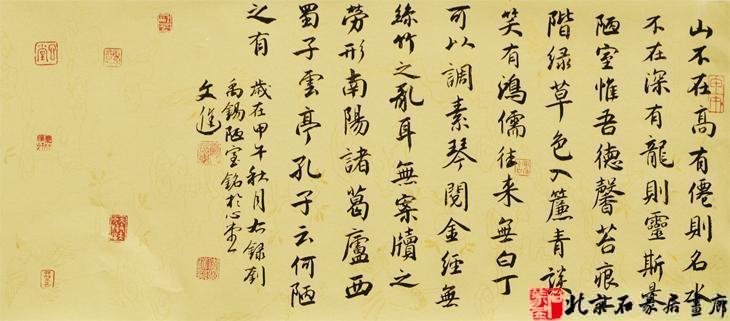 山不在高有僊則名水
不在深有龍則靈斯是
陋室惟吾德馨苔痕
階綠草色入簾青談
笑有鴻儒往来無白丁
可以調素琴閱金經無
絲竹之亂耳無案牘之
勞形南陽諸葛廬西
蜀子雲亭孔子云何陋
之有
歲在甲午秋月右錄劉
禹錫陋室銘於心堂
文進
北京石居畫廊